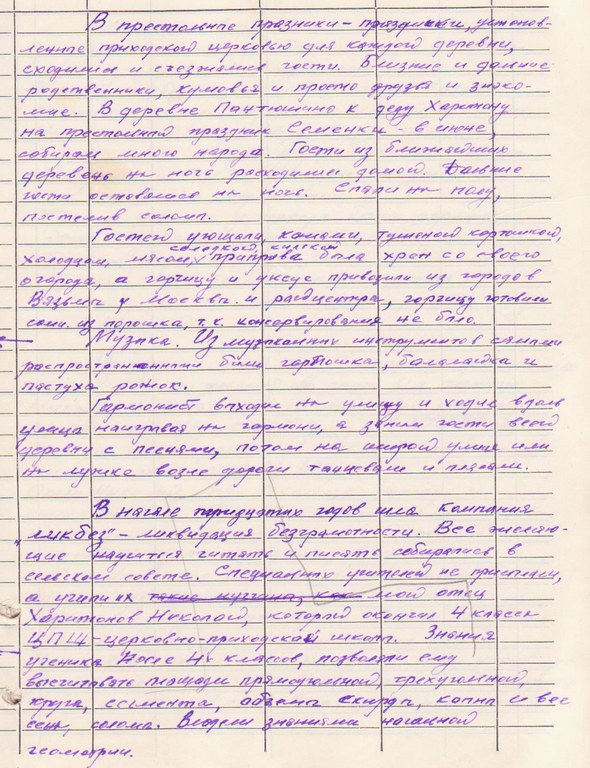 В престольные празники - праздники, установ-
ленные приходской церковью для каждой деревни,
сходились и съезжались гости. Близкие и дальние
родственники, кумовья и просто друзья и знако-
мые. В деревне Пантюшино к деду Харитону
на престольный праздник Семенки - в июне,
собирали много народа. Гости из ближайших
деревень на ночь расходились домой. Дальние
гости оставались на ночь. Спали на полу,
постелив солому.
Гостей угощали, конями, тушеной картошкой,
холодцом, мясом, солодкой киселем приправа была хрен со своего
огорода, а горчицу и уксус привозили из городов
Вязьмы и Москвы и райцентра, горчицу готовили
сами из порошка, т.к. консервирования не было.
Музыка. Из музыкальных инструментов самыми
распространенными были гармошка, балалайка и
пастуха рожок.
Гармонист выходил на улицу и ходил вдоль
улицы наигрывая на гармони, а затем гости всей
деревни с песнями, потом на широкой улице или
на лужке возле дороги танцевали и плясали.
В начале тридцатых годов шла компания
"ликбез" - ликвидация безграмотности. Все желаю-
щие научится читать и писать собирались в
сельском совете. Специальных учителей не присылали,
а учили их такие мужчины, как мой отец
Харитонов Николай, который окончил 4 класса
ЦПШ - церковно-приходской школы. Знания
ученика после 4х классов, позволяли ему
высчитывать площади прямоугольной, трехугольной,
круга, сегмента, объемы скирды, копны и вес
сена, соломы. Владели знаниями начальной
геометрии.